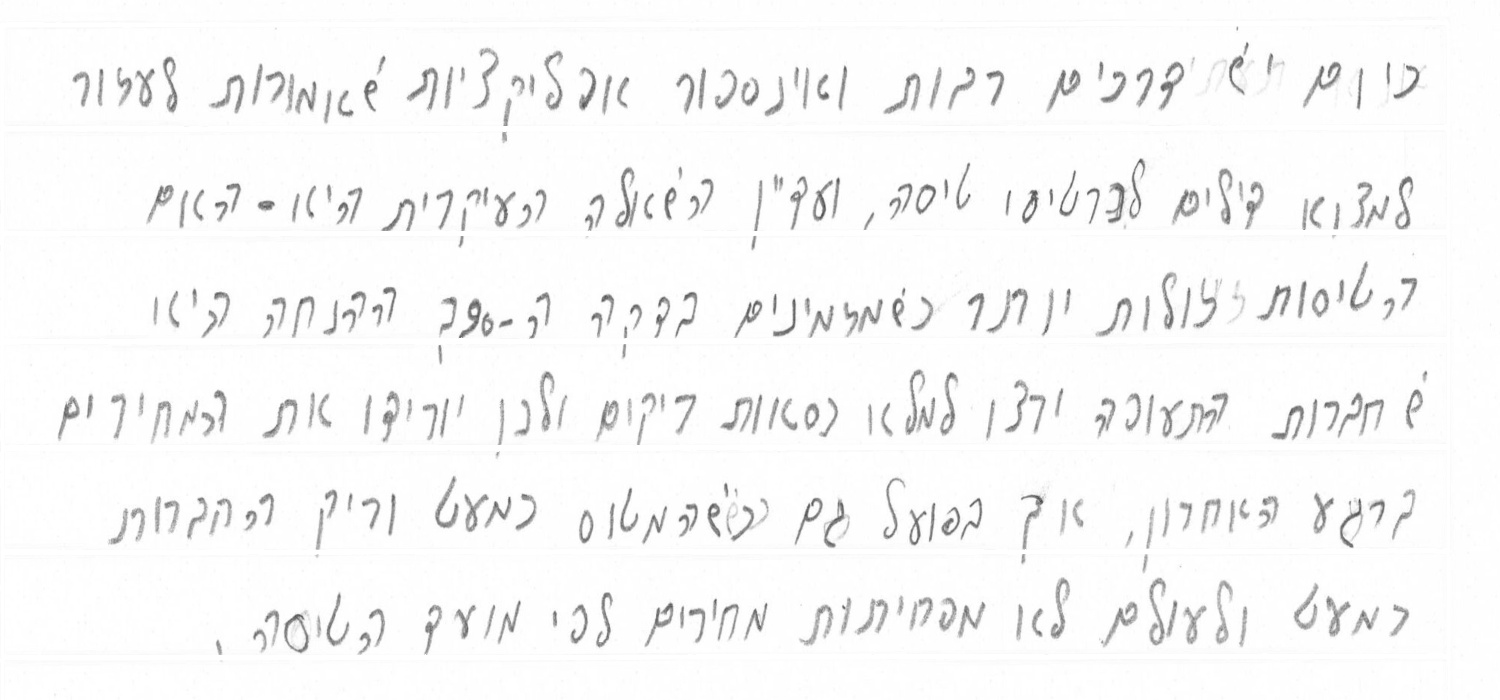 כיום יש דרכים רבות ואינספור אפליקציות שאמורות לעזור
למצוא דילים לכרטיסי טיסה, ועדיין השאלה העיקרית היא - האם
הטיסות זולות יותר כשמזמינים בדקה ה-90ב ההנחה היא
שחברות התעופה ירצו למלא כסאות ריקים ולכן יורידו את המחירים
ברגע האחרון, אך בפועל גם כשהמטוס כמעט וריק החברות
כמעט ולעולם לא מפחיתות מחירים לפי מועד הטיסה.